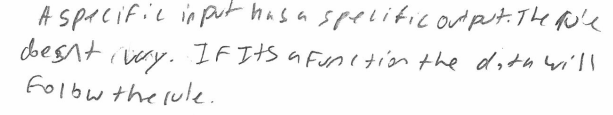 A specific input has a specific output. The rule
doesn't vary. IF Its a function the data will
Follow the rule.